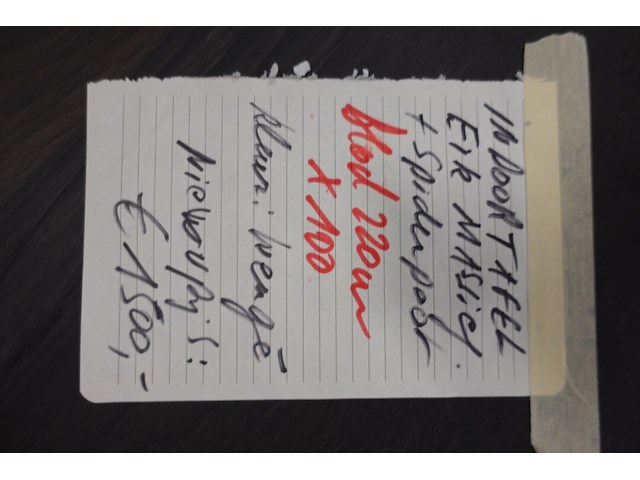 INDOOR TAFEL
EIK MASSIEF.
+ Spiderpoot
blad 220cm
x 100
kleur: wengé
Nieuwprijs:
€ 1500,-